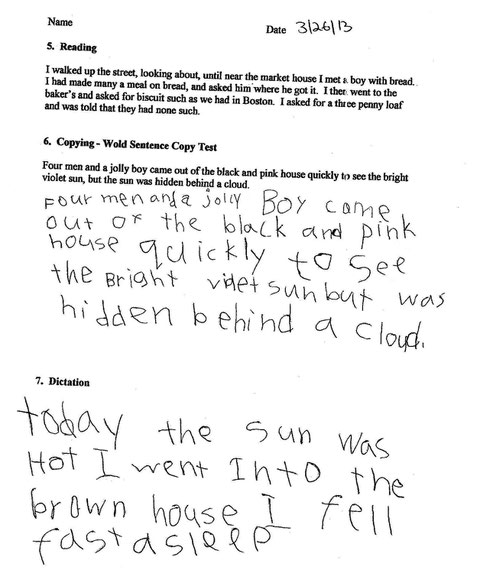 Name
Date 3/26/13
5. Reading
I walked up the street, looking about, until near the market house I met a boy with bread.
I had made many a meal on bread, and asked him where he got it. I then went to the
baker's and asked for biscuit such as we had in Boston. I asked for a three penny loaf
and was told that they had none such.
6. Copying - Wold Sentence Copy Test
Four men and a jolly boy came out of the black and pink house quickly to see the bright
violet sun, but the sun was hidden behind a cloud.
Four men and a jolly Boy came
out of the black and pink
house quickly to see
the Bright violet sun but was
hidden behind a cloud.
7. Dictation
today the sun was
Hot I went Into the
brown house I fell
fast asleep